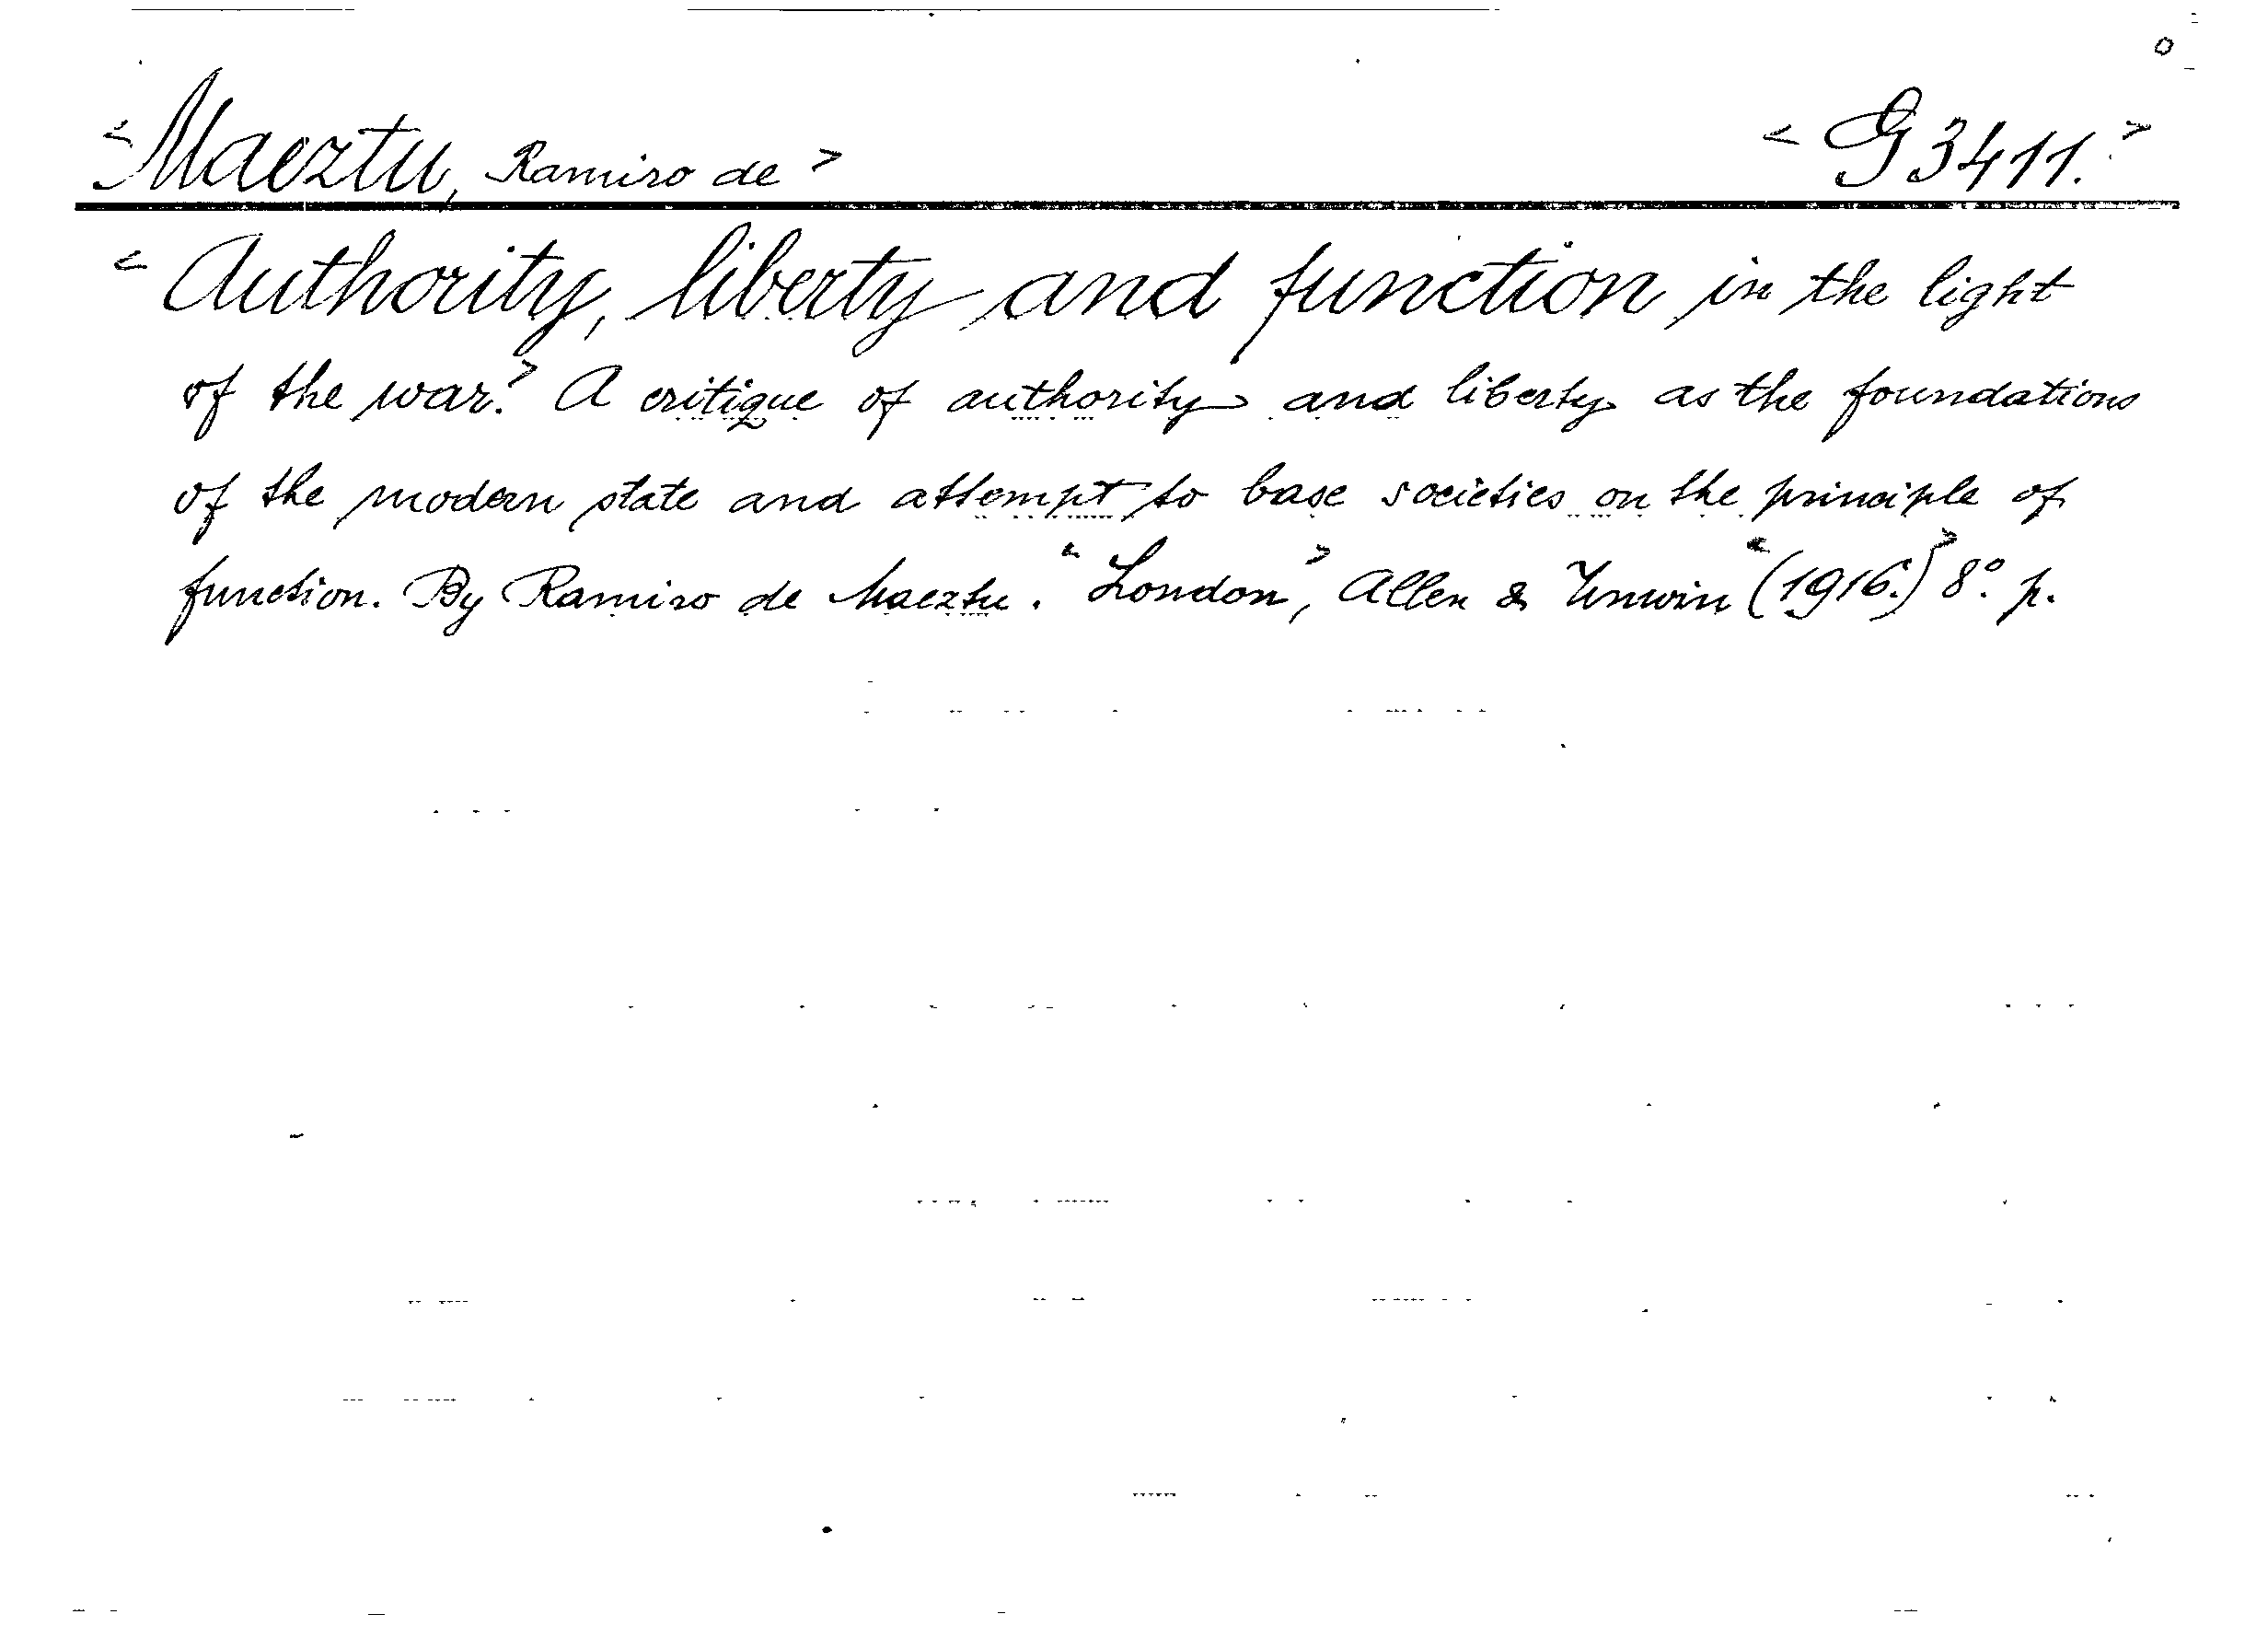 <Maeztu, Ramiro de> <G 3411.>
<Authority, liberty and function in the light
of the war.> A critique of authority and liberty as the foundations
of the modern state and attempt to base societies on the principle of
function. By Ramiro de Maeztu. <London>, Allen & Unwin <(1916.)> 8°. p.